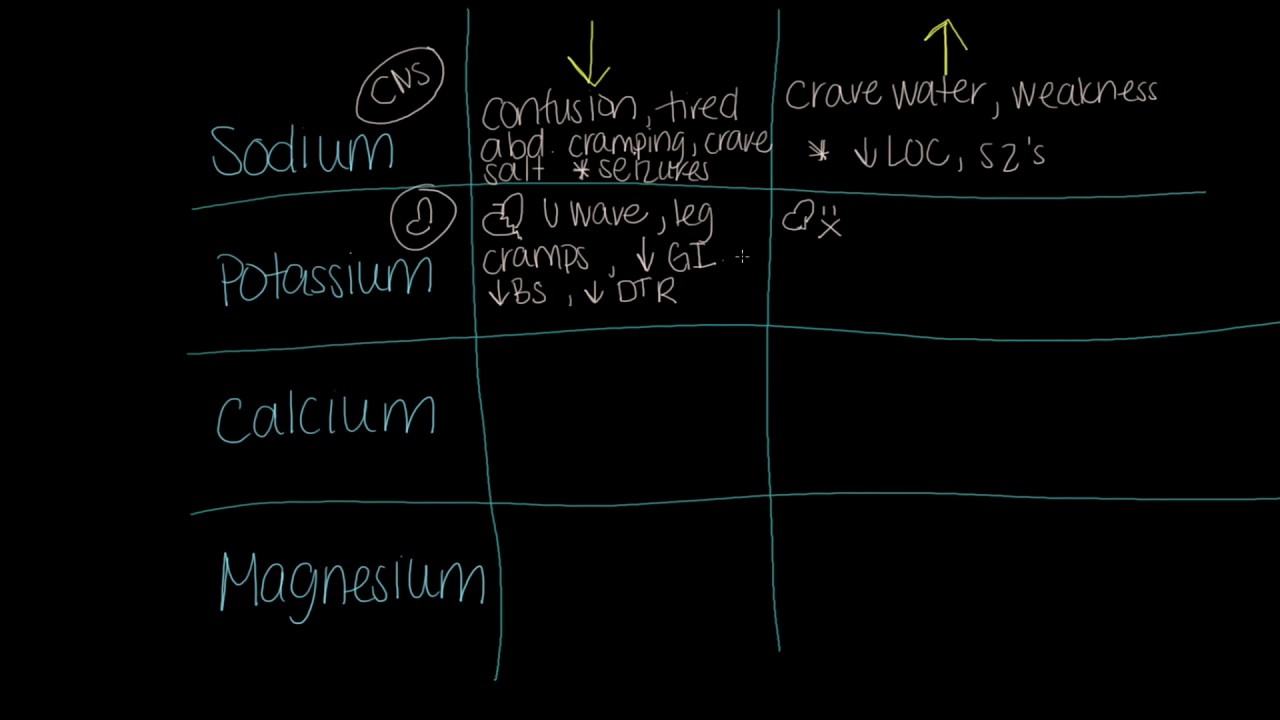 CNS
Sodium
confusion, tired
abd. cramping, crave
salt * seizures
crave water, weakness
* ↓ LOC, SZ's
Potassium
U wave, leg
cramps, ↓ GI
↓ BS, ↓ DTR
Calcium
Magnesium